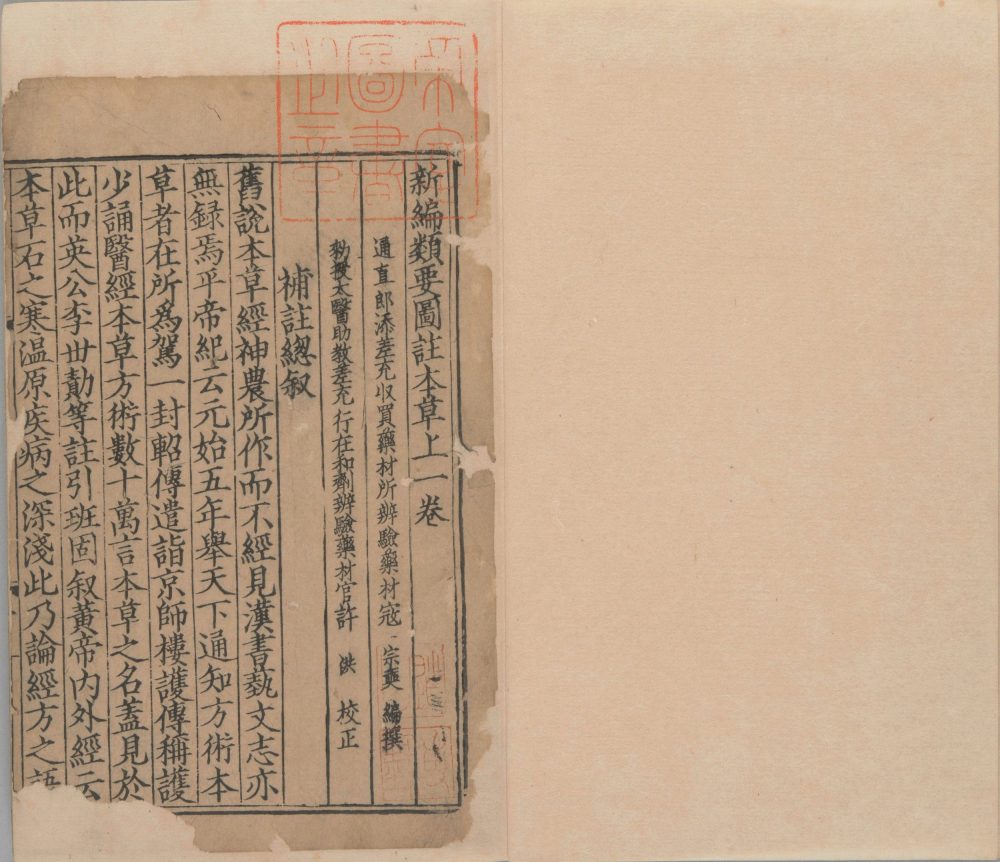 新編類要圖註本草上一卷
通直郎添差充收買藥材所辨驗藥材寇 宗奭 編撰
勑授太醫助教差充行在和劑辨驗藥材官許 洪 校正
補註總叙
舊說本草經神農所作而不經見漢書藝文志亦
無録焉平帝紀云元始五年舉天下通知方術本
草者在所為駕一封軺傳遣詣京師樓護傳稱護
少誦醫經本草方術數十萬言本草之名蓋見於
此而英公李世勣等註引班固叙黃帝内外經云
本草石之寒温原疾病之深淺此乃論經方之語
圖書
之章